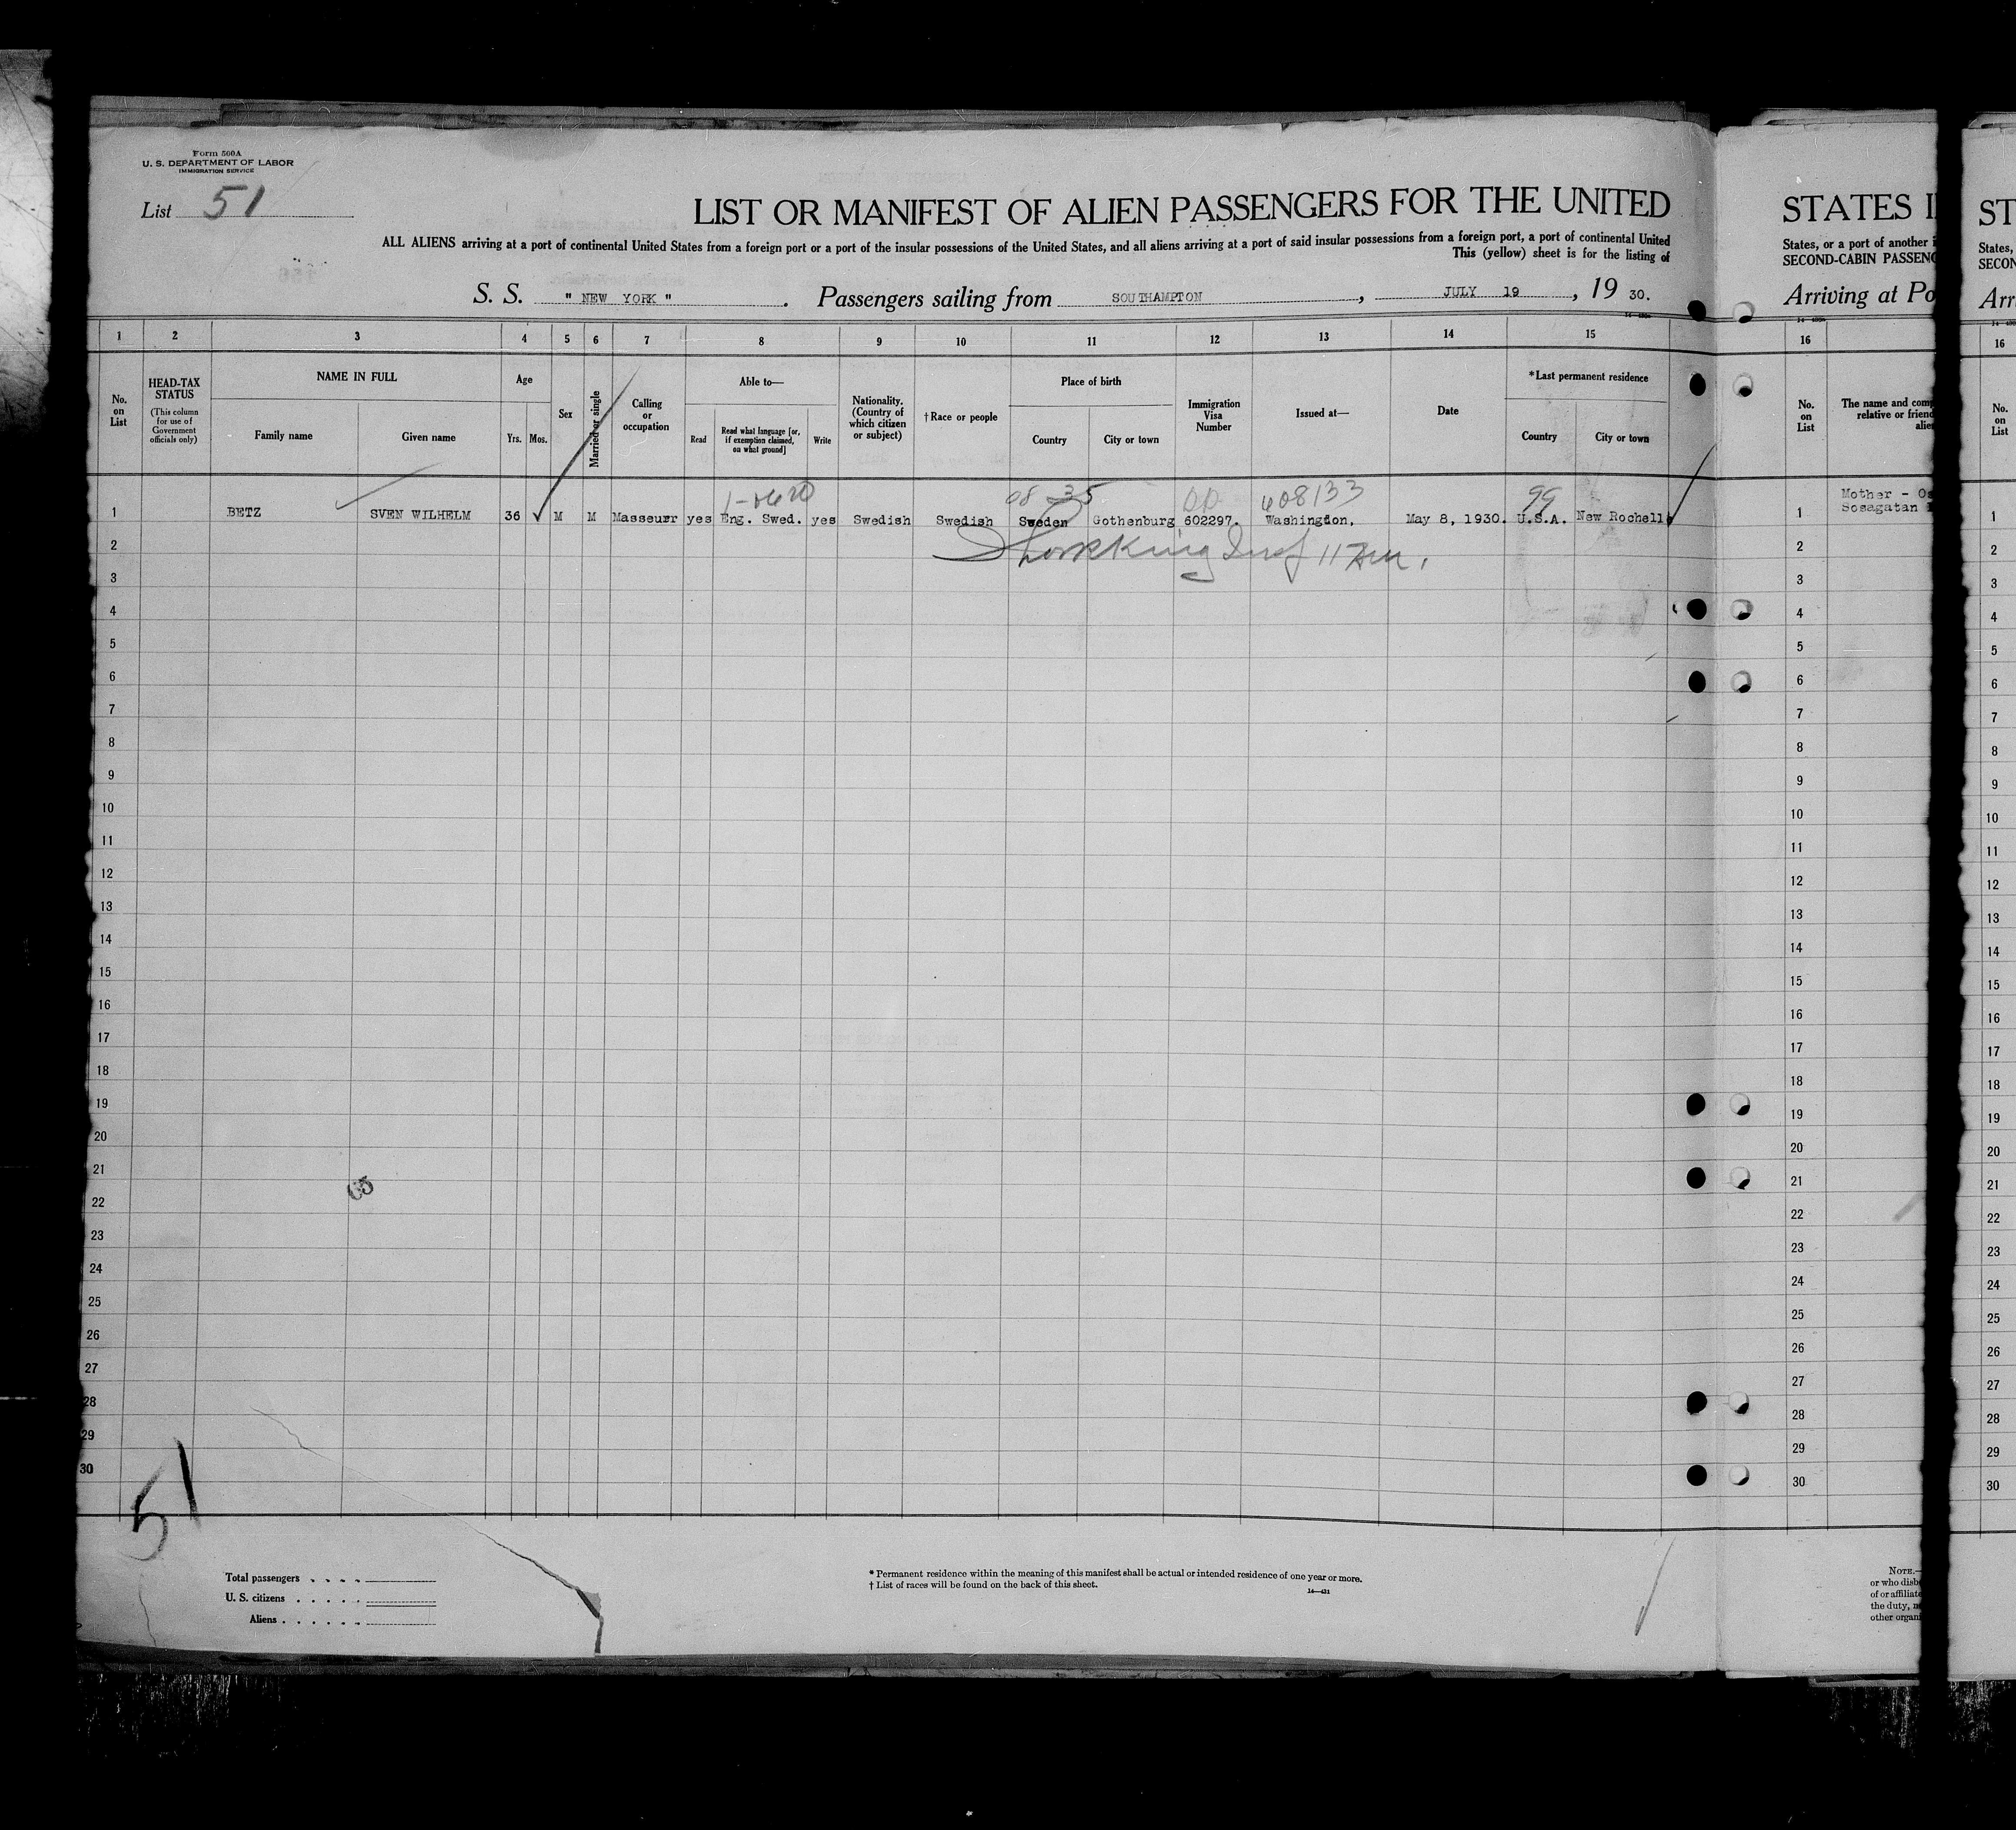 Form 500A
U. S. DEPARTMENT OF LABOR
IMMIGRATION SERVICE
List 51
LIST OR MANIFEST OF ALIEN PASSENGERS FOR THE UNITED
ALL ALIENS arriving at a port of continental United States from a foreign port or a port of the insular possessions of the United States, and all aliens arriving at a port of said insular possessions from a foreign port, a port of continental United
This (yellow) sheet is for the listing of
S. S. " NEW YORK " . Passengers sailing from SOUTHAMPTON , JULY 19 , 19 30.
1 2 3 4 5 6 7 8 9 10 11 12 13 14 15
No. on List
HEAD-TAX STATUS
(This column for use of Government officials only)
NAME IN FULL
Family name
Given name
Age
Yrs. Mos.
Sex
Married or single
Calling or occupation
Able to—
Read
Read what language [or, if exemption claimed, on what ground]
Write
Nationality. (Country of which citizen or subject)
†Race or people
Place of birth
Country
City or town
Immigration Visa Number
Issued at—
Date
*Last permanent residence
Country
City or town
08 35 608133 99
1 BETZ SVEN WILHELM 36 ✓ M M Masseur yes Eng. Swed. yes Swedish Swedish Sweden Gothenburg 602297. Washington, May 8, 1930. U.S.A. New Rochell
2
3
4
5
6
7
8
9
10
11
12
13
14
15
16
17
18
19
20
21
65
22
23
24
25
26
27
28
29
30
51
Total passengers . . . .
U. S. citizens . . . . .
Aliens . . . . . .
* Permanent residence within the meaning of this manifest shall be actual or intended residence of one year or more.
† List of races will be found on the back of this sheet.
14—431
STATES I
States, or a port of another i
SECOND-CABIN PASSENG
Arriving at Po
16
No. on List
The name and comp
relative or friend
alie
1 Mother - Os
Sosagatan
2
3
4
5
6
7
8
9
10
11
12
13
14
15
16
17
18
19
20
21
22
23
24
25
26
27
28
29
30
NOTE.—
or who disb
of or affiliate
the duty, n
other organi
ST
States,
SECON
Arr
16
No. on List
1
2
3
4
5
6
7
8
9
10
11
12
13
14
15
16
17
18
19
20
21
22
23
24
25
26
27
28
29
30